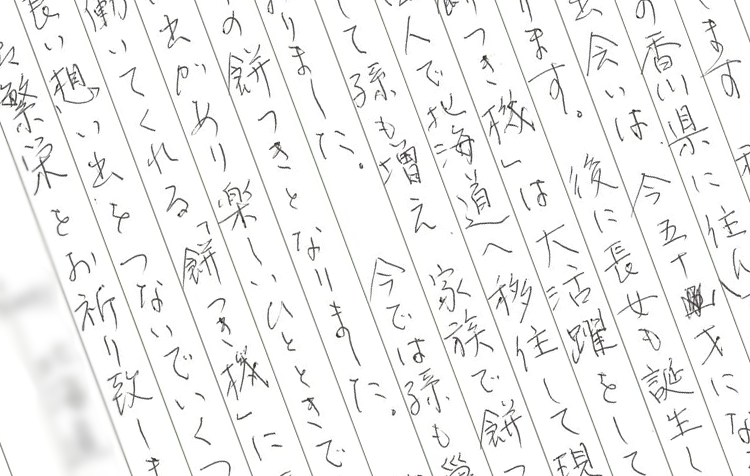 ます
の香川県に住ん
出会いは 今五十才にな
ります。 後に長女も誕生し
つき機」は大活躍をして
人で北海道へ移住して現
して孫も増え 家族で餅つ
りました。 今では孫も
の餅つきとなりました。
出があり楽しいひとときで
働いてくれる「餅つき機」に
良い想い出をつないでいくつ
繁栄をお祈り致しま